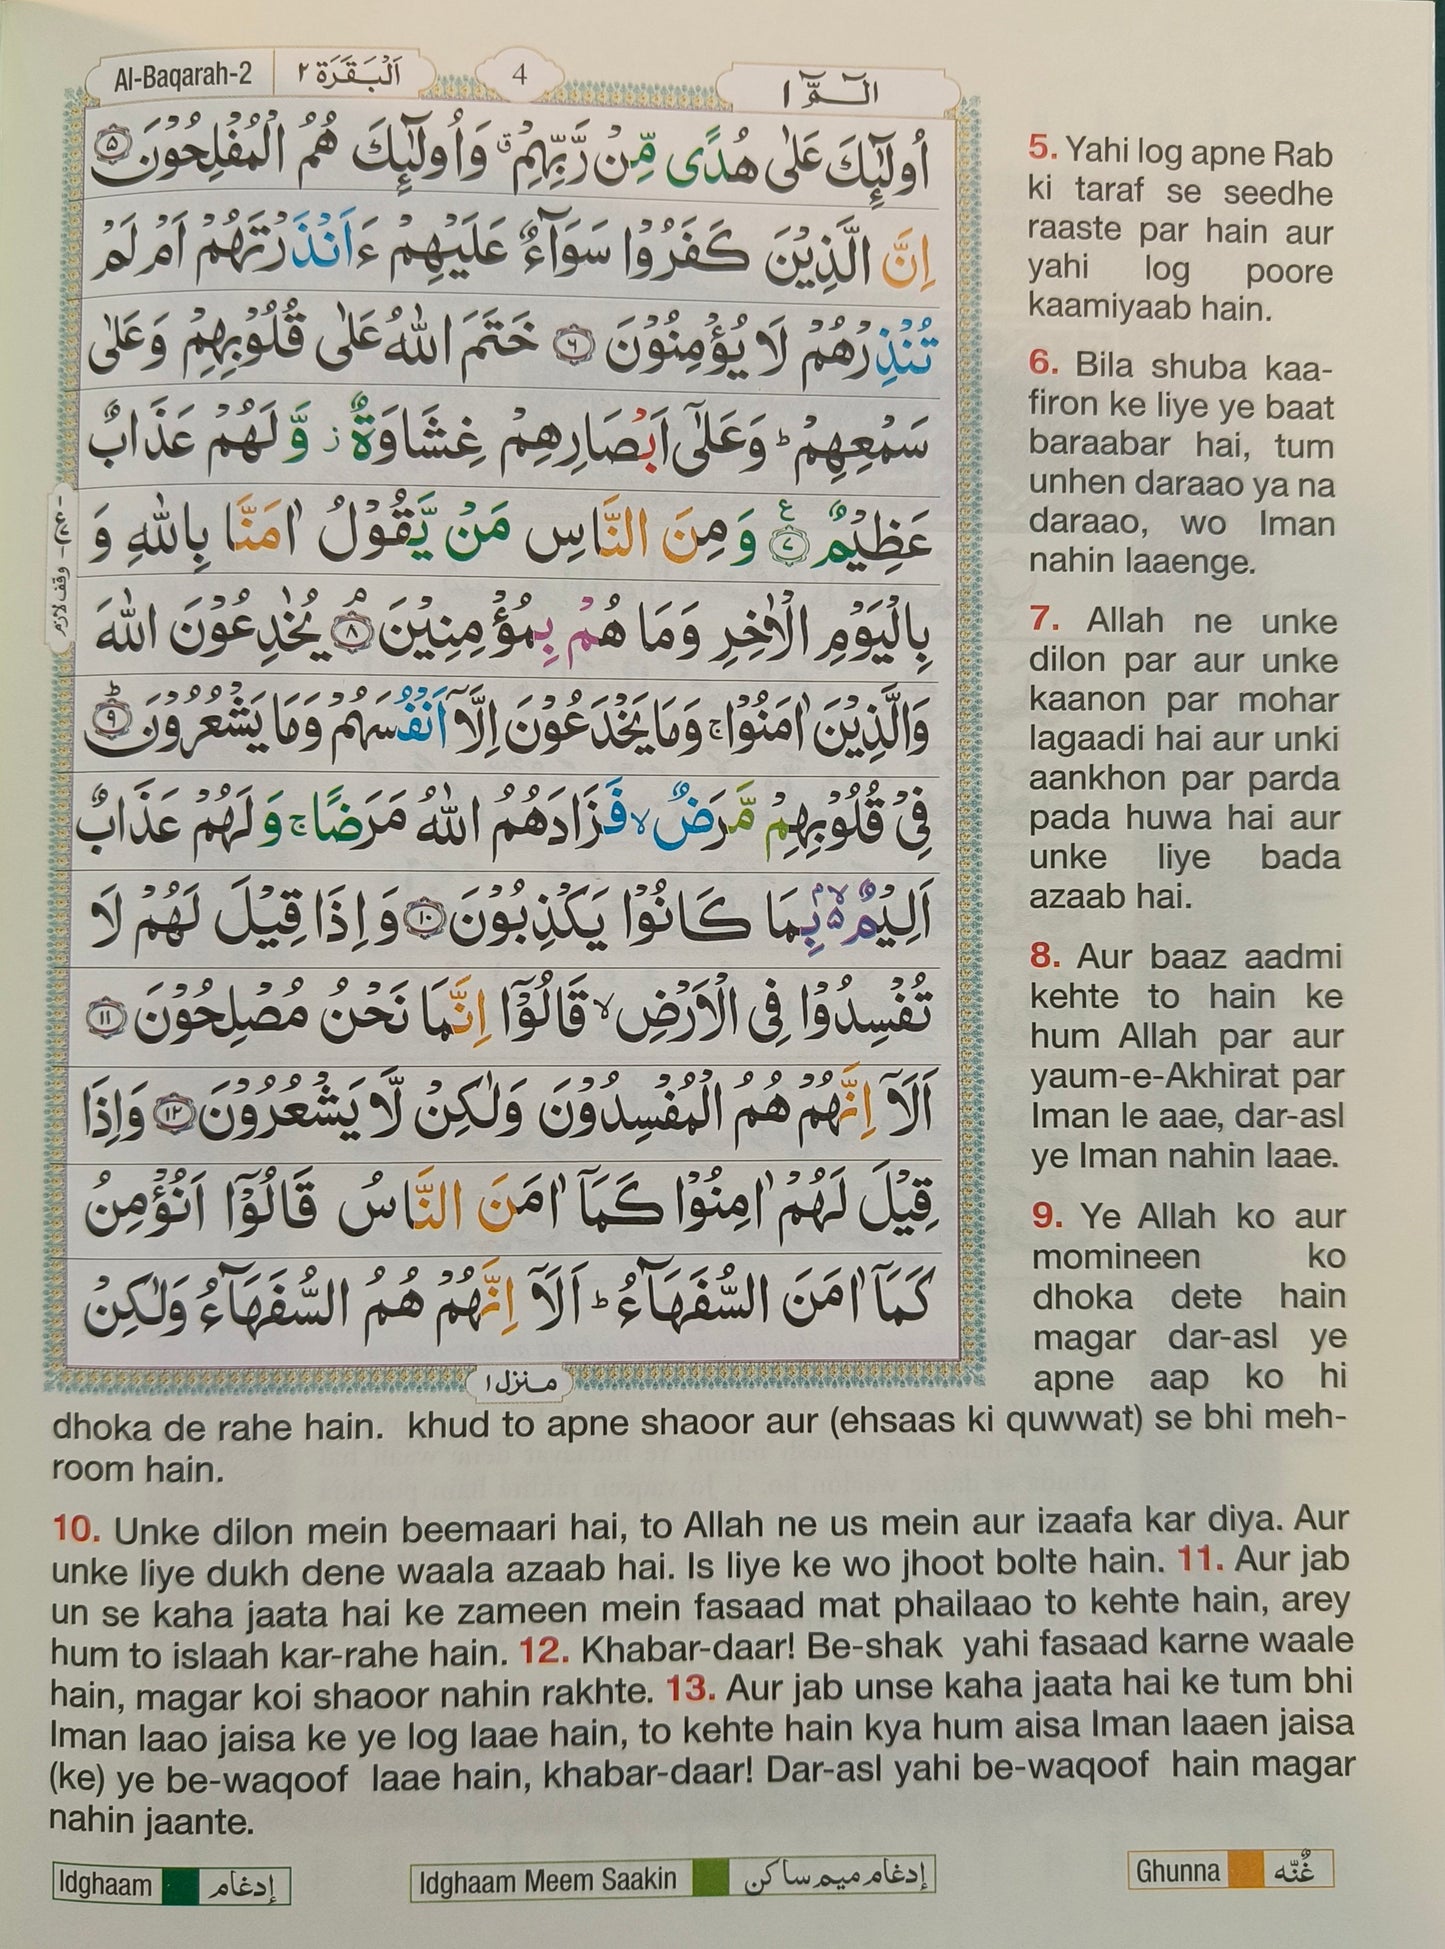 Al-Baqarah-2 اَلْبَقَرَة ٢
4
الٓـمّٓ ١
اُولٰٓئِكَ عَلٰى هُدًى مِّنْ رَّبِّهِمْ ۗ وَاُولٰٓئِكَ هُمُ الْمُفْلِحُوْنَ ٥
اِنَّ الَّذِيْنَ كَفَرُوْا سَوَآءٌ عَلَيْهِمْ ءَاَنْذَرْتَهُمْ اَمْ لَمْ
تُنْذِرْهُمْ لَا يُؤْمِنُوْنَ ٦ خَتَمَ اللّٰهُ عَلٰى قُلُوْبِهِمْ وَعَلٰى
سَمْعِهِمْ ؕ وَعَلٰٓى اَبْصَارِهِمْ غِشَاوَةٌ ز وَّلَهُمْ عَذَابٌ
عَظِيْمٌ ٧ ع وَمِنَ النَّاسِ مَنْ يَّقُوْلُ اٰمَنَّا بِاللّٰهِ وَ
بِالْيَوْمِ الْاٰخِرِ وَمَا هُمْ بِمُؤْمِنِيْنَ ٨ۘ يُخٰدِعُوْنَ اللّٰهَ
وَالَّذِيْنَ اٰمَنُوْا ۚ وَمَا يَخْدَعُوْنَ اِلَّآ اَنْفُسَهُمْ وَمَا يَشْعُرُوْنَ ٩ؕ
فِيْ قُلُوْبِهِمْ مَّرَضٌ ۙ فَزَادَهُمُ اللّٰهُ مَرَضًا ۚ وَلَهُمْ عَذَابٌ
اَلِيْمٌ ۢ ۙ بِمَا كَانُوْا يَكْذِبُوْنَ ١٠ وَاِذَا قِيْلَ لَهُمْ لَا
تُفْسِدُوْا فِى الْاَرْضِ ۙ قَالُوْٓا اِنَّمَا نَحْنُ مُصْلِحُوْنَ ١١
اَلَآ اِنَّهُمْ هُمُ الْمُفْسِدُوْنَ وَلٰكِنْ لَّا يَشْعُرُوْنَ ١٢ وَاِذَا
قِيْلَ لَهُمْ اٰمِنُوْا كَمَآ اٰمَنَ النَّاسُ قَالُوْٓا اَنُؤْمِنُ
كَمَآ اٰمَنَ السُّفَهَآءُ ؕ اَلَآ اِنَّهُمْ هُمُ السُّفَهَآءُ وَلٰكِنْ
وقف لازم
منزل ١
5. Yahi log apne Rab
ki taraf se seedhe
raaste par hain aur
yahi log poore
kaamiyaab hain.
6. Bila shuba kaa-
firon ke liye ye baat
baraabar hai, tum
unhen daraao ya na
daraao, wo Iman
nahin laaenge.
7. Allah ne unke
dilon par aur unke
kaanon par mohar
lagaadi hai aur unki
aankhon par parda
pada huwa hai aur
unke liye bada
azaab hai.
8. Aur baaz aadmi
kehte to hain ke
hum Allah par aur
yaum-e-Akhirat par
Iman le aae, dar-asl
ye Iman nahin laae.
9. Ye Allah ko aur
momineen ko
dhoka dete hain
magar dar-asl ye
apne aap ko hi
dhoka de rahe hain. khud to apne shaoor aur (ehsaas ki quwwat) se bhi meh-
room hain.
10. Unke dilon mein beemaari hai, to Allah ne us mein aur izaafa kar diya. Aur
unke liye dukh dene waala azaab hai. Is liye ke wo jhoot bolte hain. 11. Aur jab
un se kaha jaata hai ke zameen mein fasaad mat phailaao to kehte hain, arey
hum to islaah kar-rahe hain. 12. Khabar-daar! Be-shak yahi fasaad karne waale
hain, magar koi shaoor nahin rakhte. 13. Aur jab unse kaha jaata hai ke tum bhi
Iman laao jaisa ke ye log laae hain, to kehte hain kya hum aisa Iman laaen jaisa
(ke) ye be-waqoof laae hain, khabar-daar! Dar-asl yahi be-waqoof hain magar
nahin jaante.
Idghaam إدغام
Idghaam Meem Saakin إدغام ميم ساكن
Ghunna غُنّه